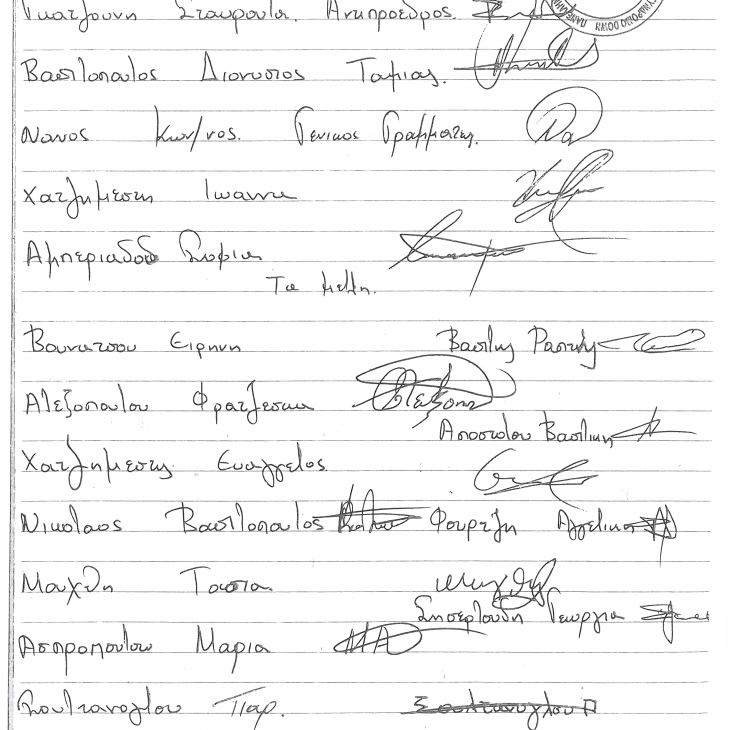 Γκατζουνη Σταυρουλα. Αντιπροεδρος.
Βασιλοπουλος Διονυσιος Ταμιας.
Νανος Κων/νος. Γενικος Γραμματεας.
Χατζημεσης Ιωαννα
Αμπεριαδου Σοφια
Τα μελη.
Βουνατσου Ειρηνη Βασιλης
Αλεξοπουλου Φρατζεσκα
Αποστολου Βασιλικη
Χατζημεσης Ευαγγελος
Νικολαος Βασιλοπουλος Φουρεζη Αγγελικη
Μαχλη Τασια
Γεωργια
Ασπροπουλου Μαρια
Σουλτανογλου Παρ. Σουλτανογλου Π